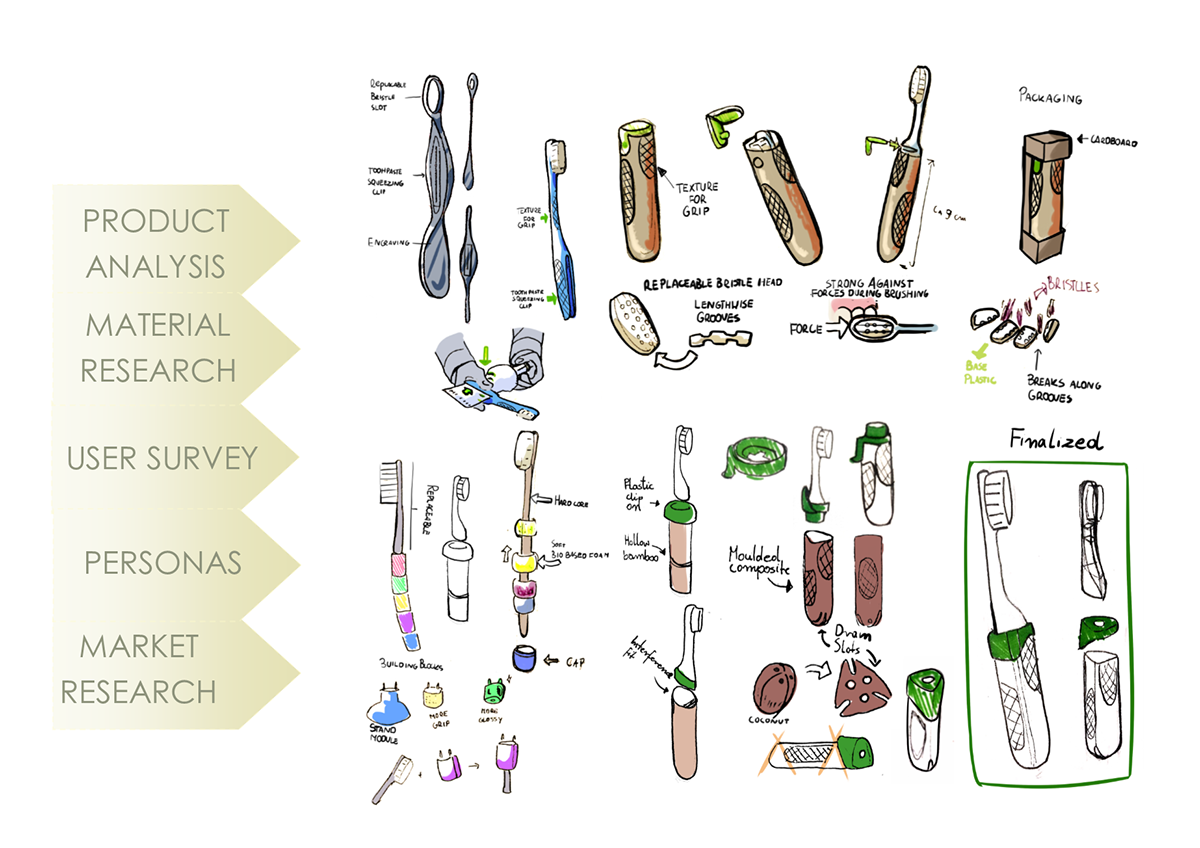 PRODUCT
ANALYSIS
MATERIAL
RESEARCH
USER SURVEY
PERSONAS
MARKET
RESEARCH
REPLACABLE
BRISTLE
SLOT
TOOTHPASTE
SQUEEZING
CLIP
ENGRAVING
TEXTURE
FOR
GRIP
TOOTHPASTE
SQUEEZING
CLIP
TEXTURE
FOR
GRIP
Ca 9 cm
PACKAGING
CARDBOARD
REPLACEABLE BRISTLE HEAD
LENGTHWISE
GROOVES
STRONG AGAINST
FORCES DURING BRUSHING
FORCE
BRISTLES
BASE
PLASTIC
BREAKS ALONG
GROOVES
REPLACEABLE
HARD CORE
SOFT
BIO BASED FOAM
CAP
BUILDING BLOCKS
STAND
MODULE
MORE
GRIP
MORE
GLOSSY
Plastic
clip
on
Hollow
bamboo
Interference
fit
Moulded
composite
Drain
Slots
COCONUT
Finalized